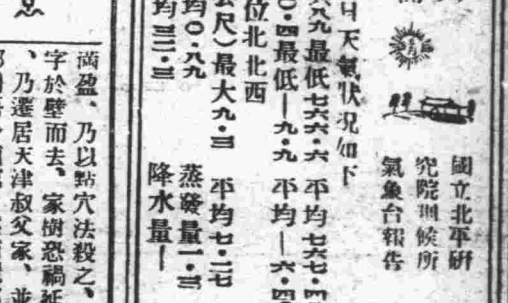 國立北平研
究院測候所
氣象台報告
日天氣狀况如下
八九最低七六六·六 平均七六七·四
〇·四最低—九·九 平均—六·四
位北北西
公尺)最大九·三 平均七·二七
均〇·八九 蒸發量一·三
均三二·三 降水量—
滿盈、乃以點穴法殺之、
字於壁而去、家樹恐禍延
、乃遷居天津叔父家、並